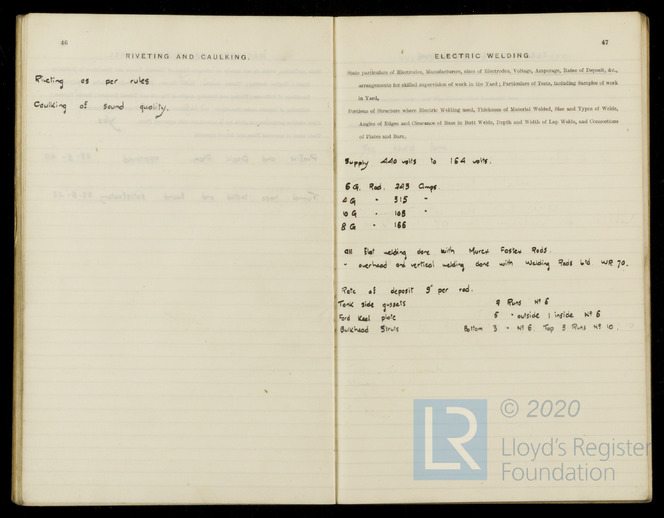 46
RIVETING AND CAULKING.
Riveting as per rules
Caulking of sound quality.
47
ELECTRIC WELDING
State particulars of Electrodes, Manufacturers, sizes of Electrodes, Voltage, Amperage, Rates of Deposit, &c.,
arrangements for skilled supervision of work in the Yard; Particulars of Tests, including Samples of work
in Yard,
Portions of Structure where Electric Welding used, Thickness of Material Welded, Size and Types of Welds,
Angles of Edges and Clearance of Bars in Butt Welds, Depth and Width of Lap Welds, and Connections
of Plates and Bars.
Supply 440 volts to 164 volts.
6 G. Rod. 243 Amps.
4 G " 315 "
10 G " 108 "
8 G " 166
All flat welding done with Murex Fastex Rods.
" overhead and vertical welding done with Welding Rods Ltd. WR 70.
Rate of deposit 9" per rod.
Tank side gussets 2 Runs Nº 6
Ford Keel plate 5 " outside 1 inside Nº 6
Bulkhead Struts Bottom 3 " Nº 6. Top 3 Runs Nº 10.
LR © 2020
Lloyd's Register
Foundation